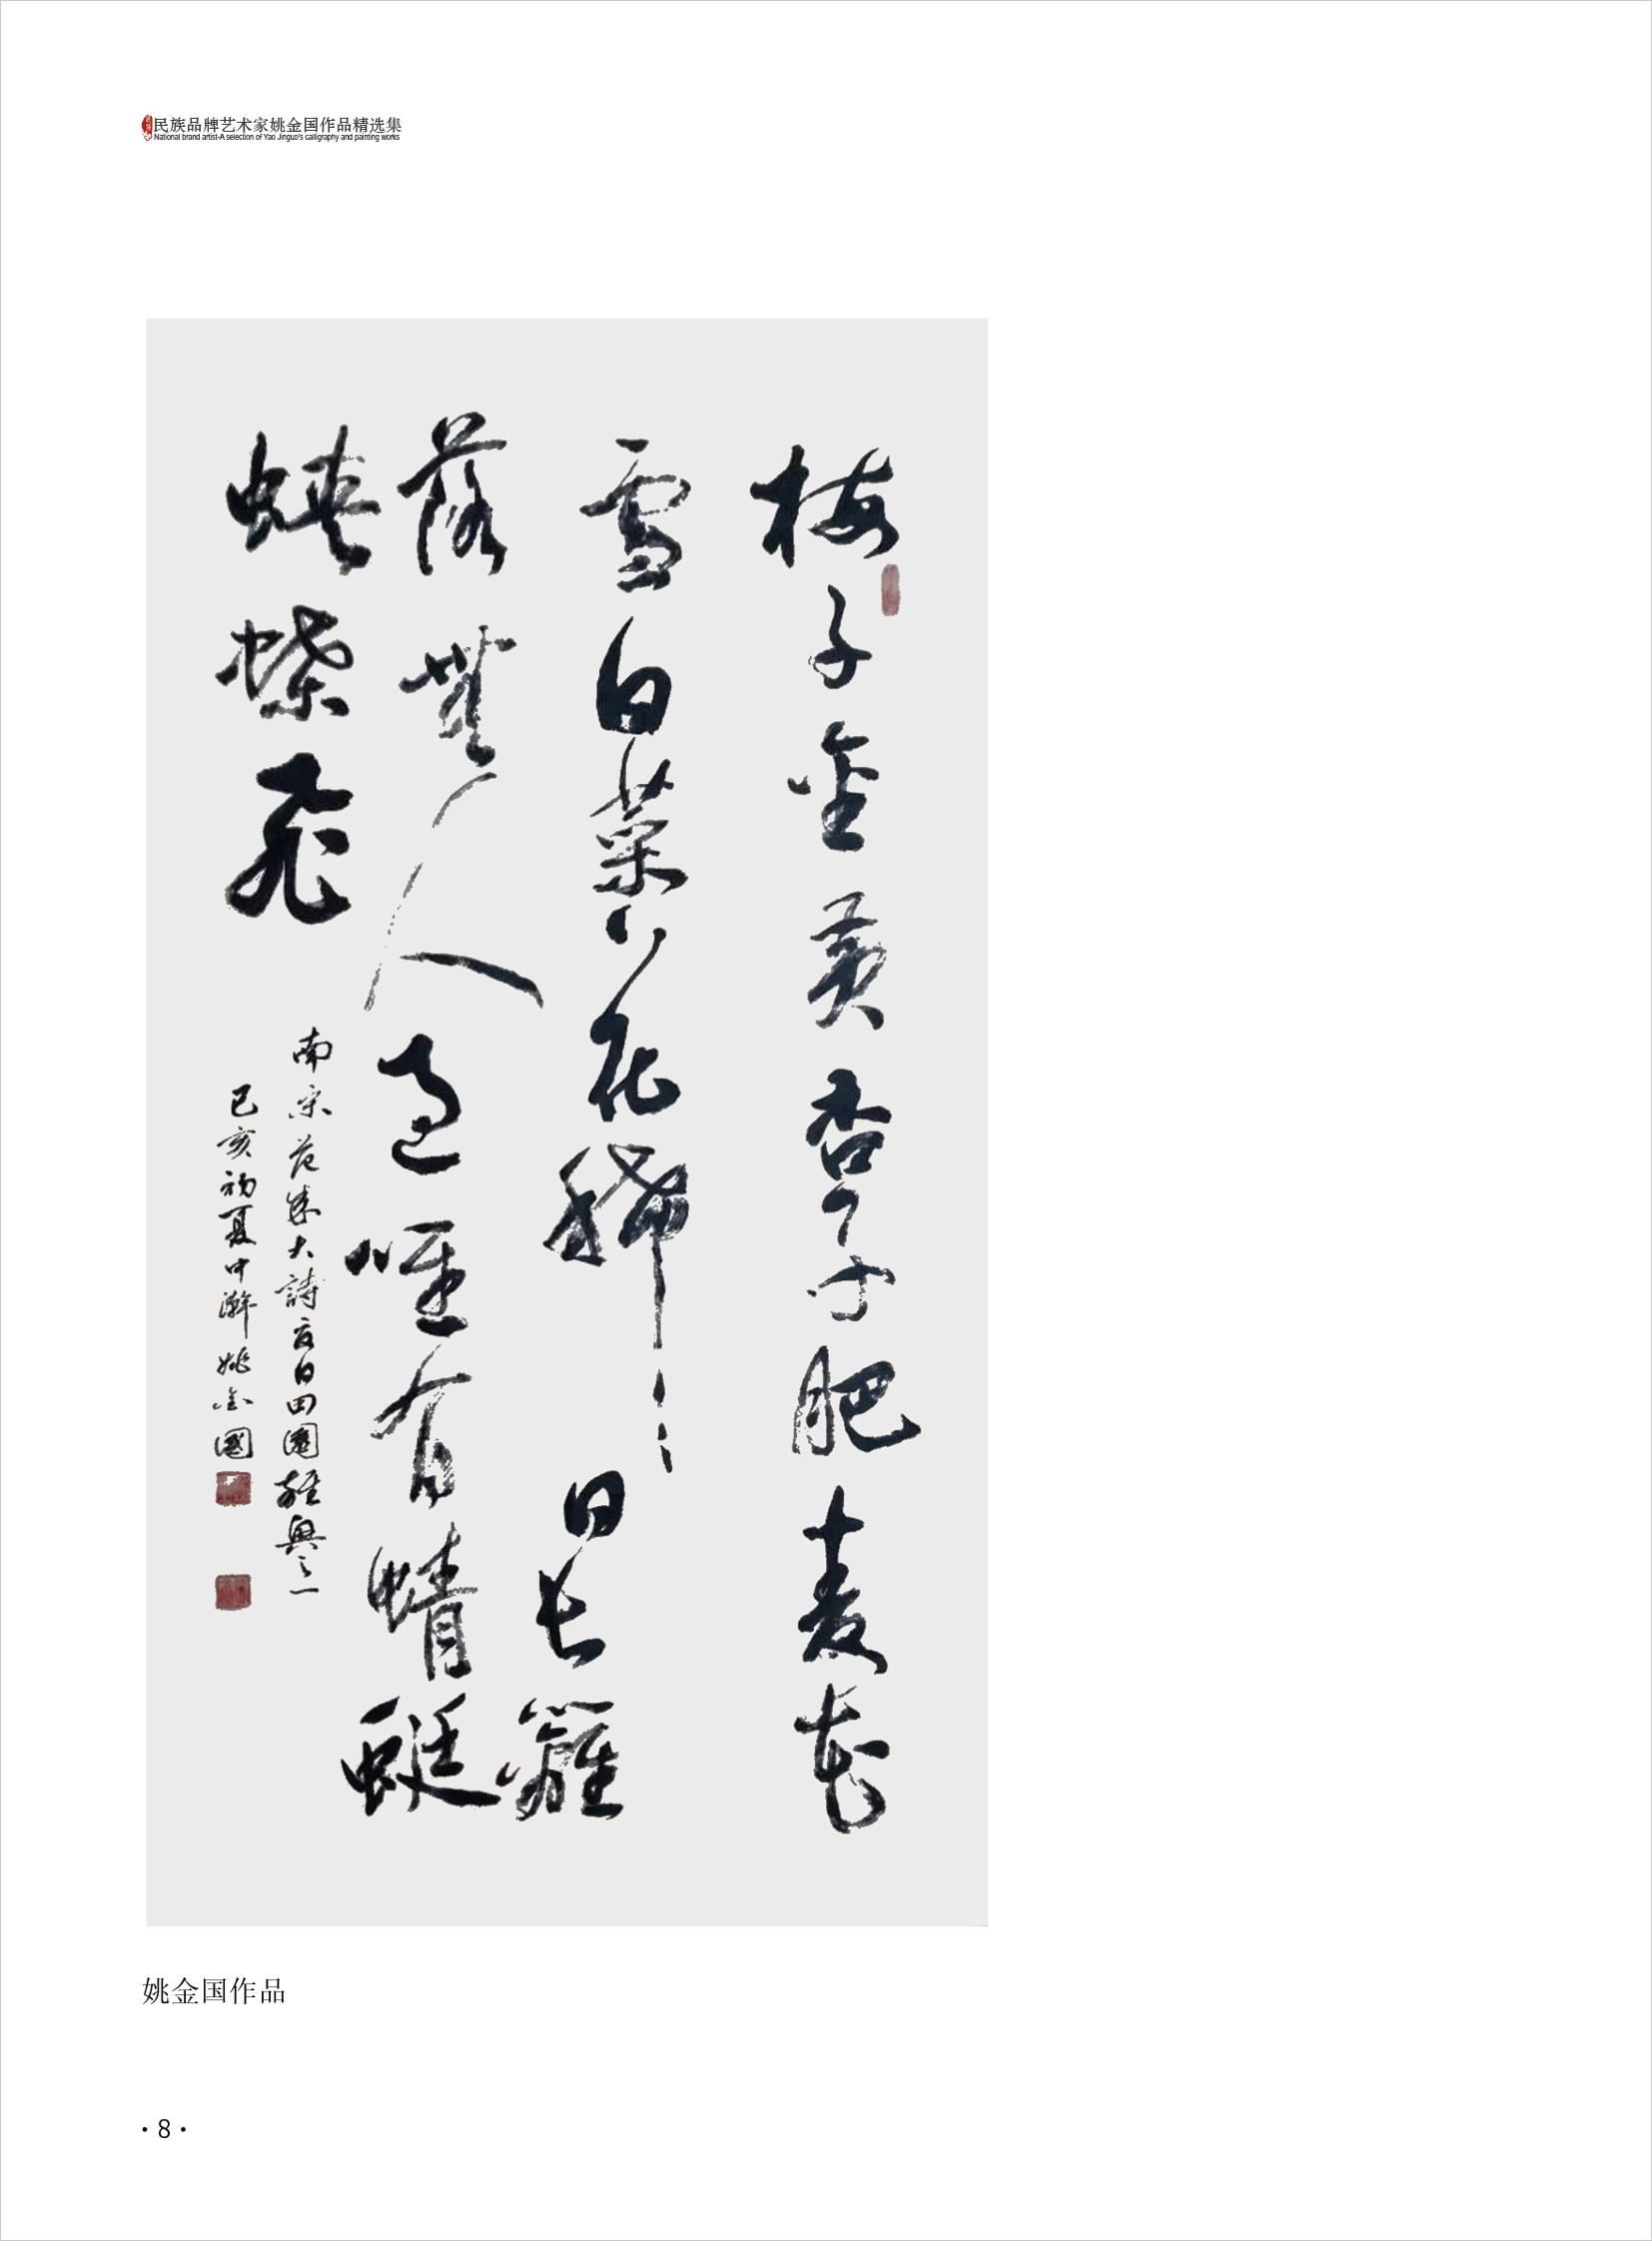 民族品牌艺术家姚金国作品精选集
National brand artist-A selection of Yao Jinguo's calligraphy and painting works
梅子金黄杏子肥麦花
雪白菜花稀日长篱
落无人过唯有蜻蜓
蛱蝶飞
南宋范成大詩夏日田園雜興之一
己亥初夏中瀚姚金國
姚金国作品
· 8 ·